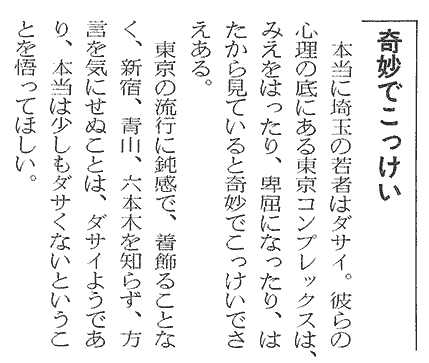 奇妙でこっけい
本当に埼玉の若者はダサイ。彼らの
心理の底にある東京コンプレックスは、
みえをはったり、卑屈になったり、は
たから見ていると奇妙でこっけいでさ
えある。
東京の流行に鈍感で、着飾ることな
く、新宿、青山、六本木を知らず、方
言を気にせぬことは、ダサイようであ
り、本当は少しもダサくないというこ
とを悟ってほしい。